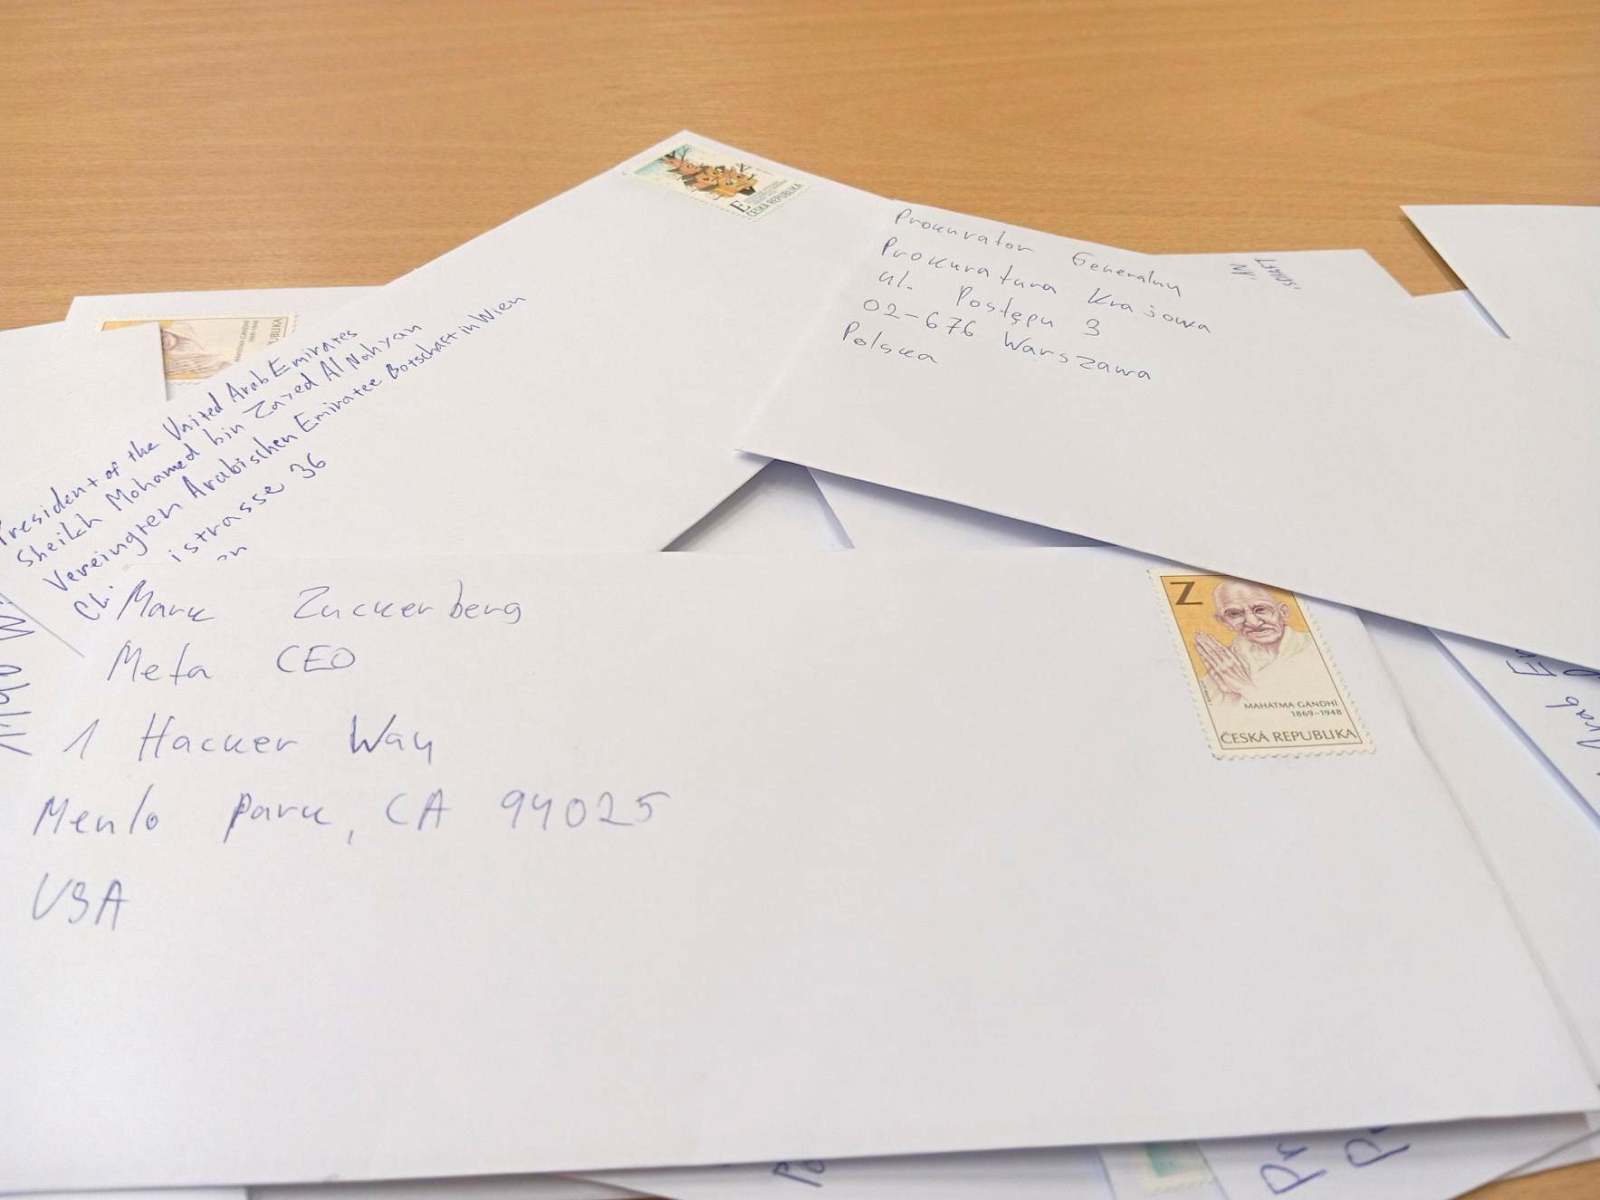 E
ČESKÁ REPUBLIKA
Prokurator Generalny
Prokuratura Krajowa
ul. Postępu 3
02-676 Warszawa
Polska
MAHÁTMA GÁNDHÍ
1869–1948
President of the United Arab Emirates
Sheikh Mohamed bin Zayed Al Nahyan
Vereingten Arabischen Emiratee Botschaft in Wien
istrasse 36
Mark Zuckerberg
Meta CEO
1 Hacker Way
Menlo Park, CA 94025
USA
Z
MAHÁTMA GÁNDHÍ
1869–1948
ČESKÁ REPUBLIKA